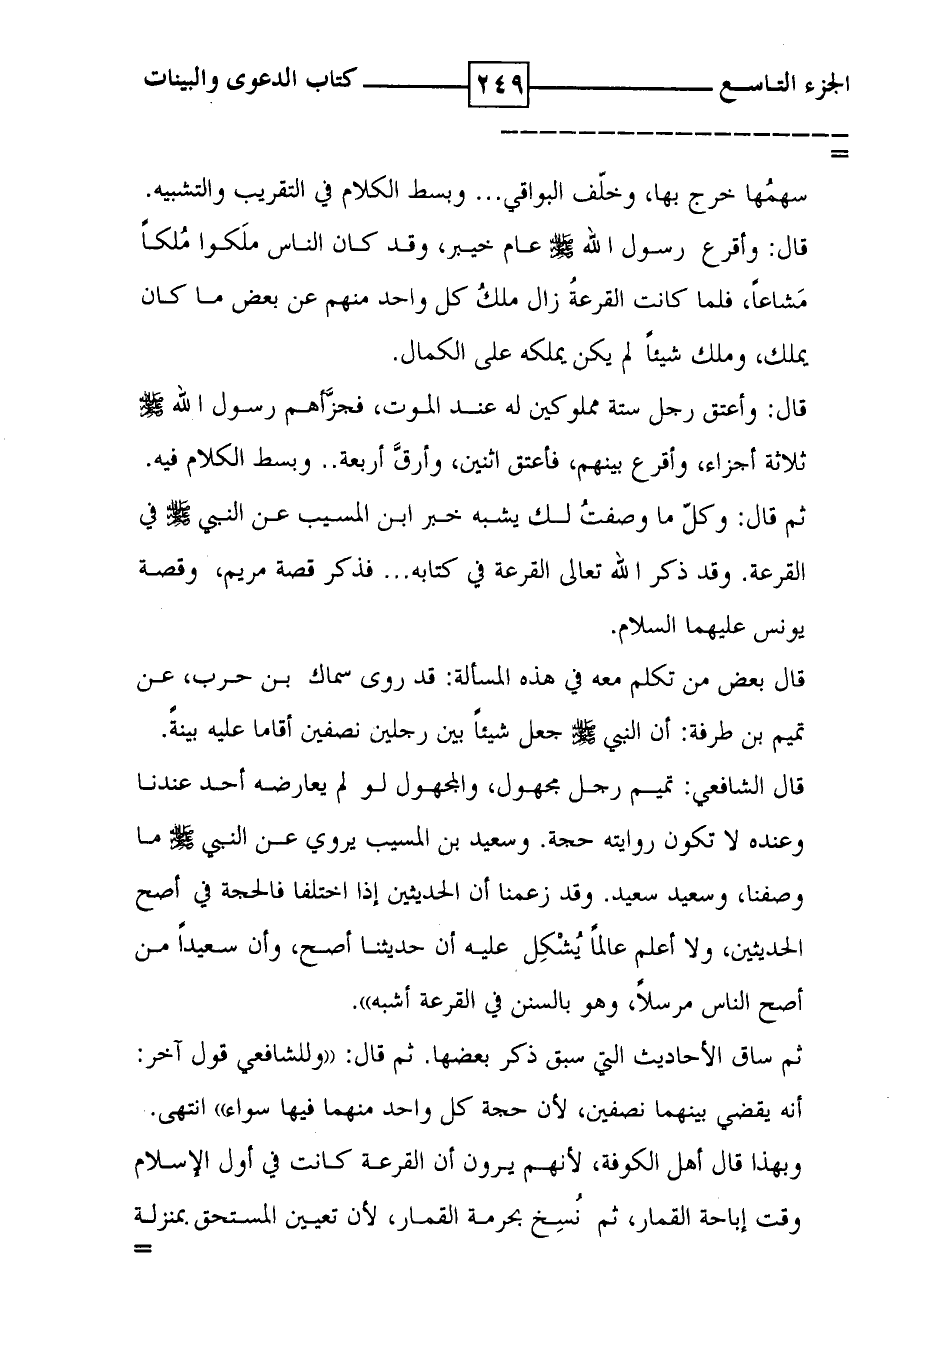 الجزء التاسع ٢٤٩ كتاب الدعوى والبينات
=
سهمُها خرج بها، وخلّف البواقي... وبسط الكلام في التقريب والتشبيه.
قال: وأقرع رسول الله ﷺ عام خيبر، وقد كان الناس ملَكوا مُلكاً
مَشاعاً، فلما كانت القرعةُ زال ملكُ كل واحد منهم عن بعض ما كان
يملك، وملك شيئاً لم يكن يملكه على الكمال.
قال: وأعتق رجل ستة مملوكين له عند الموت، فجزَّأهم رسول الله ﷺ
ثلاثة أجزاء، وأقرع بينهم، فأعتق اثنين، وأرقَّ أربعة.. وبسط الكلام فيه.
ثم قال: وكلّ ما وصفتُ لك يشبه خبر ابن المسيب عن النبي ﷺ في
القرعة. وقد ذكر الله تعالى القرعة في كتابه... فذكر قصة مريم، وقصة
يونس عليهما السلام.
قال بعض من تكلم معه في هذه المسألة: قد روى سماك بن حرب، عن
تميم بن طرفة: أن النبي ﷺ جعل شيئاً بين رجلين نصفين أقاما عليه بينةً.
قال الشافعي: تميم رجل مجهول، والمجهول لو لم يعارضه أحد عندنا
وعنده لا تكون روايته حجة. وسعيد بن المسيب يروي عن النبي ﷺ ما
وصفنا، وسعيد سعيد. وقد زعمنا أن الحديثين إذا اختلفا فالحجة في أصح
الحديثين، ولا أعلم عالماً يُشْكِل عليه أن حديثنا أصح، وأن سعيداً من
أصح الناس مرسلاً، وهو بالسنن في القرعة أشبه)).
ثم ساق الأحاديث التي سبق ذكر بعضها. ثم قال: ((وللشافعي قول آخر:
أنه يقضي بينهما نصفين، لأن حجة كل واحد منهما فيها سواء)) انتهى.
وبهذا قال أهل الكوفة، لأنهم يرون أن القرعة كانت في أول الإسلام
وقت إباحة القمار، ثم نُسِخ بحرمة القمار، لأن تعيين المستحق بمنزلة
=